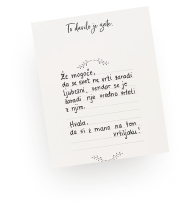 To darilo je zate.
Že mogoče,
da se svet ne vrti zaradi
ljubezni, vendar se je
zaradi nje vredno vrteti
z njim.
Hvala,
da si z mano na tem
vrtiljaku!